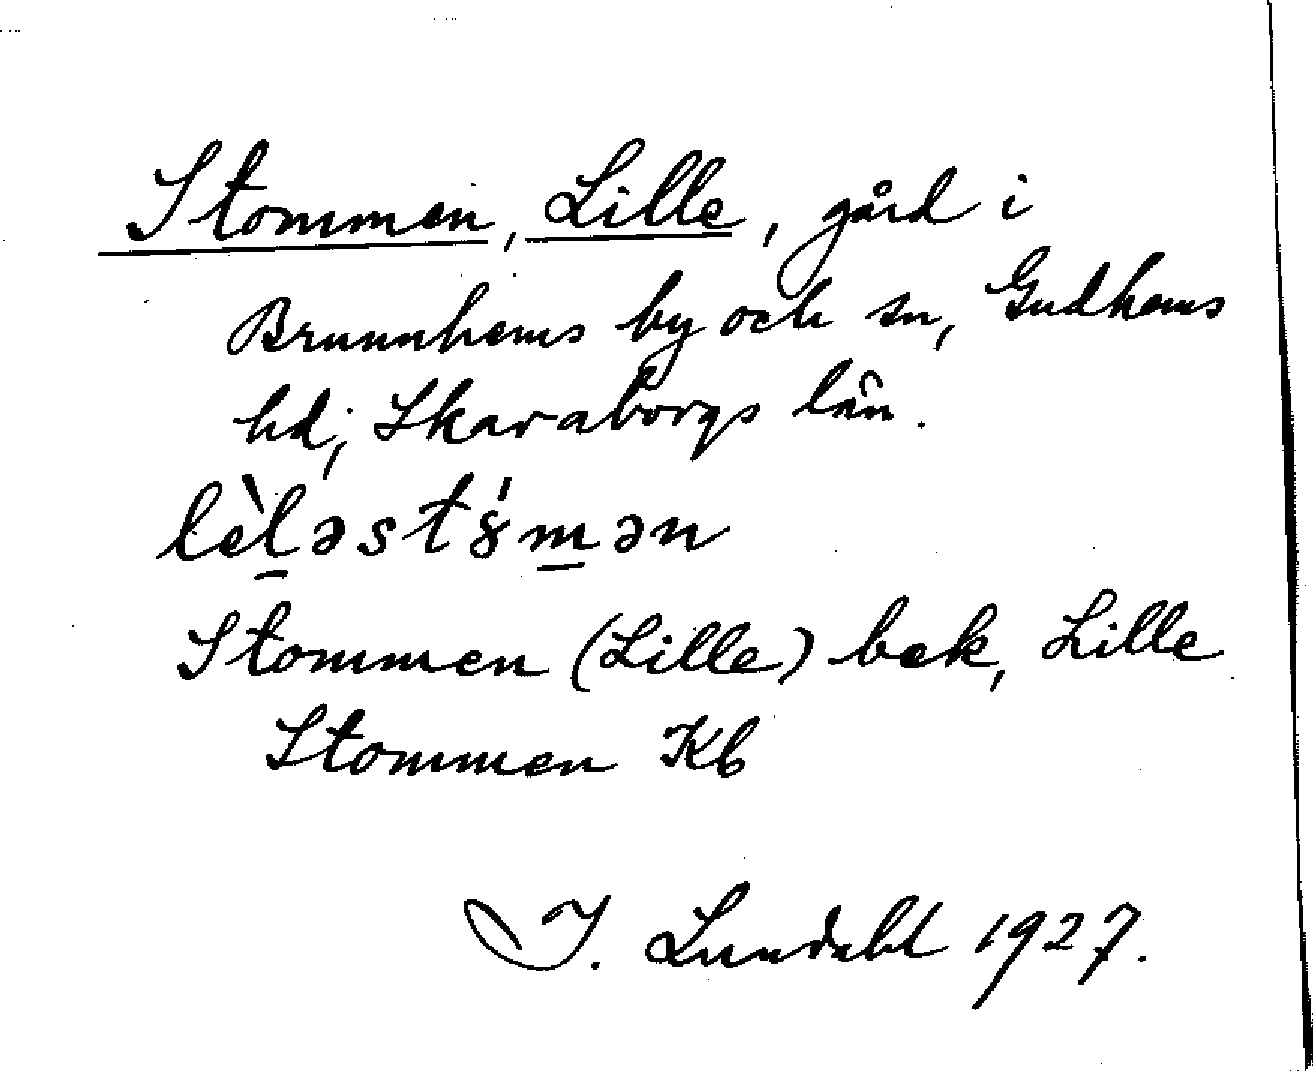 Stommen, Lille, gård i
Brunnhems by och sn, Gudhems
hd, Skaraborgs län.
lèl̠əstɤ́m̠ən
Stommen (Lille) bek, Lille
Stommen Kb
I. Lundahl 1927.